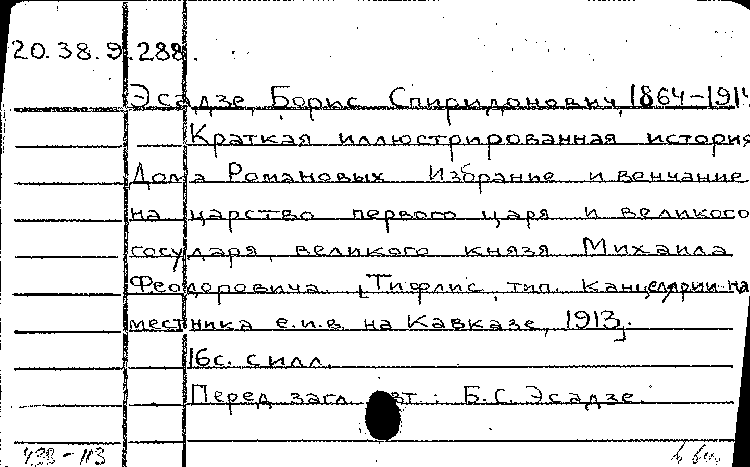 20.38.9.288.
Эсадзе, Борис Спиридонович, 1864-1914
Краткая иллюстрированная история
Дома Романовых Избрание и венчание
на царство первого царя и великого
государя, великого князя Михаила
Феодоровича. [Тифлис, тип. канцелярии на-
местника е.и.в. на Кавказе, 1913].
16с. с илл.
Перед загл. авт.: Б.С. Эсадзе.